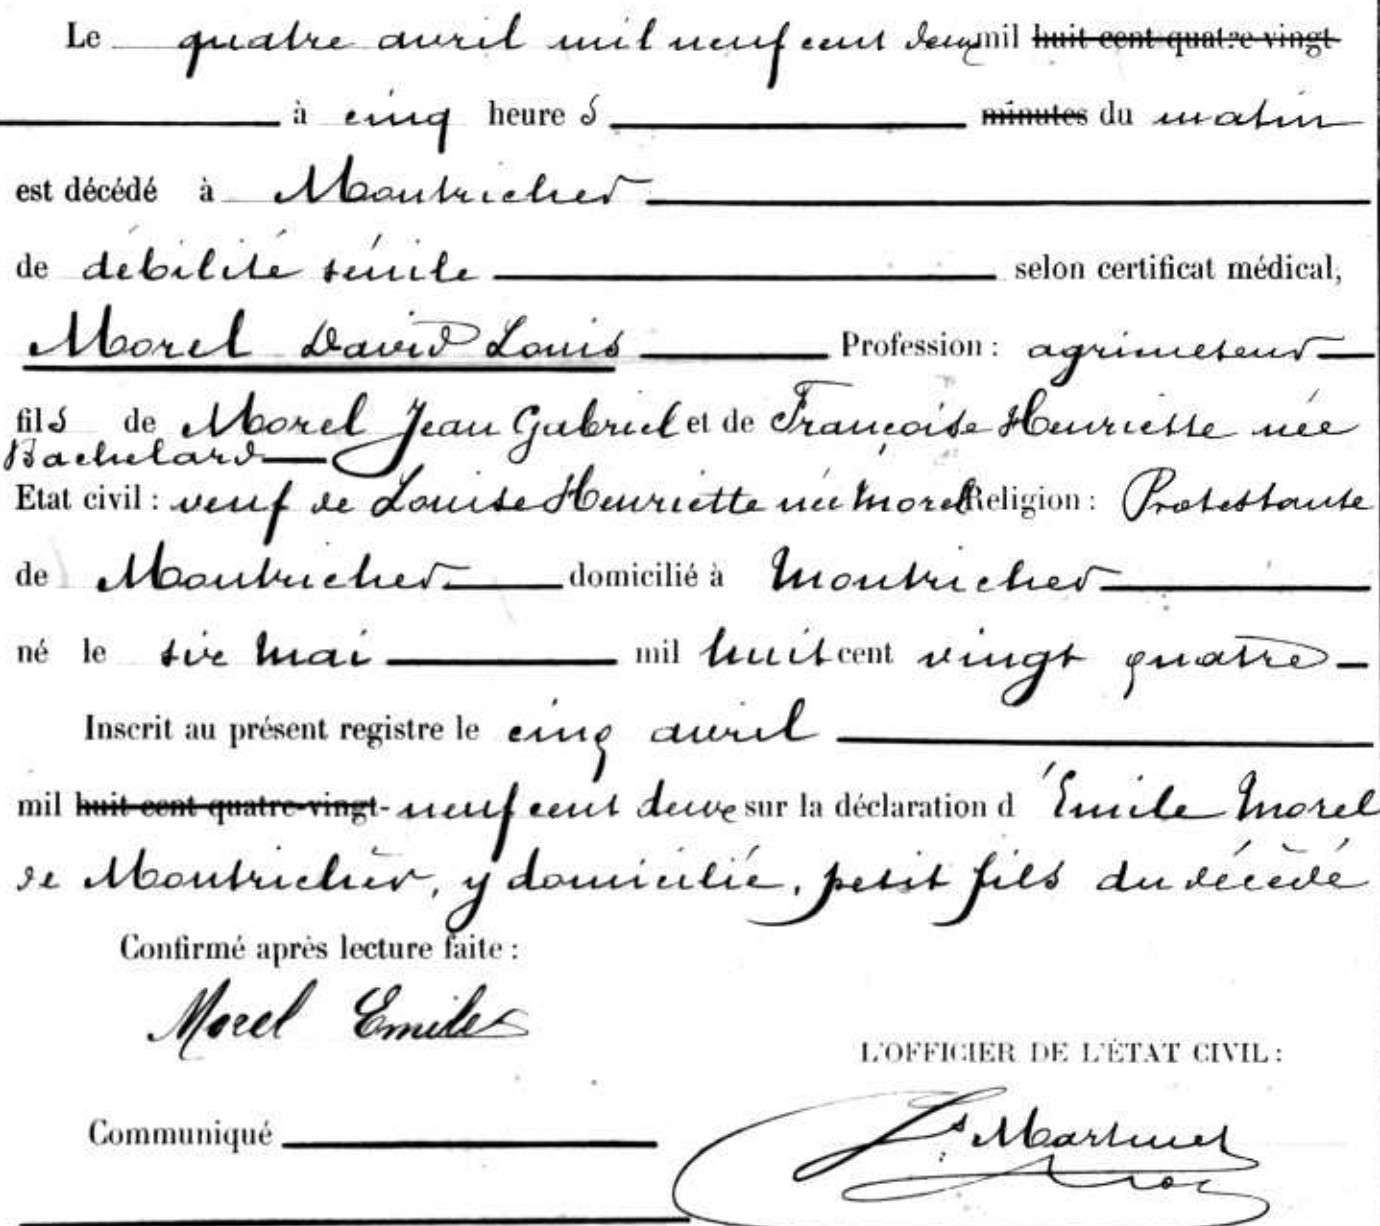 Le quatre avril mil neuf cent deux mil huit cent quatre-vingt
à cinq heures minutes du matin
est décédé à Montricher
de débilité sénile selon certificat médical,
Morel David Louis Profession : agrimeseur
fils de Morel Jean Gabriel et de Françoise Henriette née
Bachelard
Etat civil : veuf de Louise Henriette née Morel Religion : Protestante
de Montricher domicilié à Montricher
né le six Mai mil huit cent vingt quatre
Inscrit au présent registre le cinq avril
mil huit cent quatre-vingt- neuf cent deux sur la déclaration d'Emile Morel
de Montricher, y domicilié, petit fils du décédé
Confirmé après lecture faite :
Morel Emile
L'OFFICIER DE L'ÉTAT CIVIL :
Communiqué
Ls Martinet